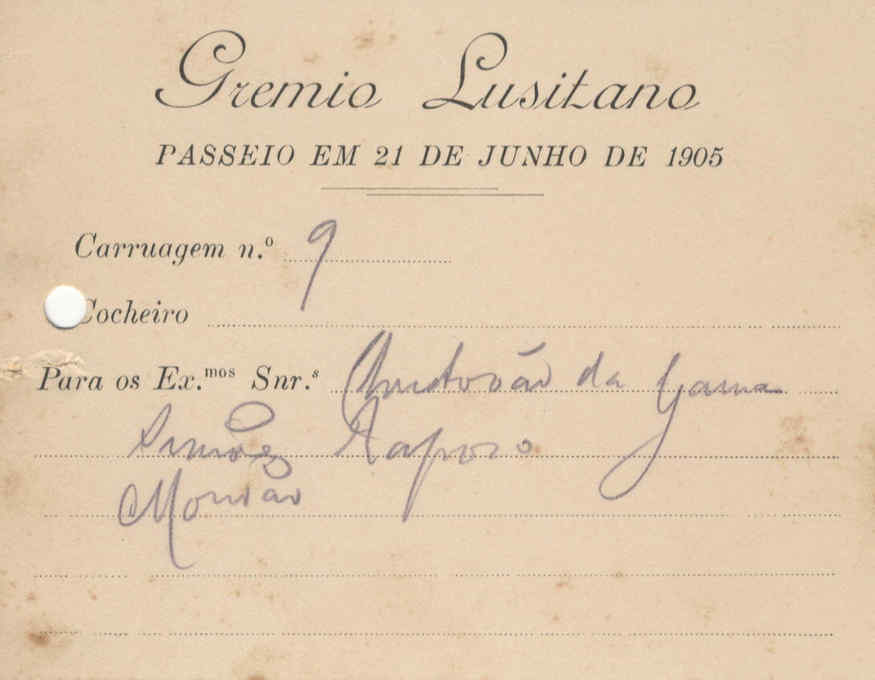 Gremio Lusitano
PASSEIO EM 21 DE JUNHO DE 1905
Carruagem n.º 9
Cocheiro
Para os Ex.mos Snr.s Christovão da Gama
Simões Raposo